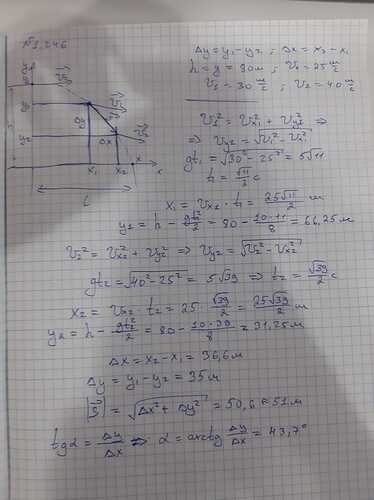 №1.246
Δy = y₁ - y₂ ; Δx = x₂ - x₁
h = y = 80м ; V₀ = 25 м/с
V₁ = 30 м/с ; V₂ = 40 м/с
V₁² = Vx₁² + Vy₁² ⇒
⇒ Vy₁ = √(V₁² - Vx₁²)
gt₁ = √(30² - 25²) = 5√11
t₁ = √11/2 c
x₁ = Vx₁ · t₁ = 25√11/2 м
y₁ = h - gt₁²/2 = 80 - 10·11/8 = 66,25м
V₂² = Vx₂² + Vy₂² ⇒ Vy₂ = √(V₂² - Vx₂²)
gt₂ = √(40² - 25²) = 5√39 ⇒ t₂ = √39/2 c
x₂ = Vx₂ · t₂ = 25 · √39/2 = 25√39/2 м
y₂ = h - gt₂²/2 = 80 - 10·39/8 = 31,25м
Δx = x₂ - x₁ = 36,6м
Δy = y₁ - y₂ = 35м
|S| = √(Δx² + Δy²) = 50,6 ≈ 51м
tgα = Δy/Δx ⇒ α = arctg Δy/Δx = 43,7°
y
V₀
V₁
y₁
Δy
y₂
Δx
V₂
x₁
x₂
x
L